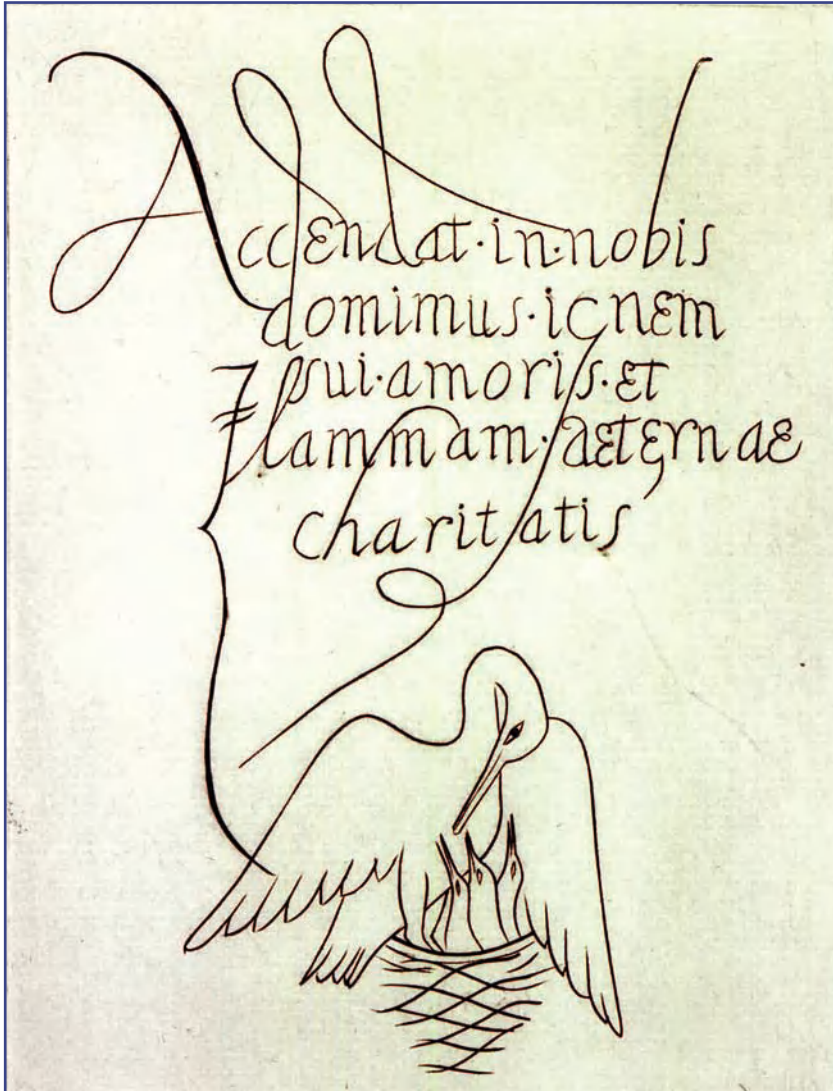 Accendat·in·nobis
domimus·ignem
sui·amoris·et
flammam·aeternae
charitatis